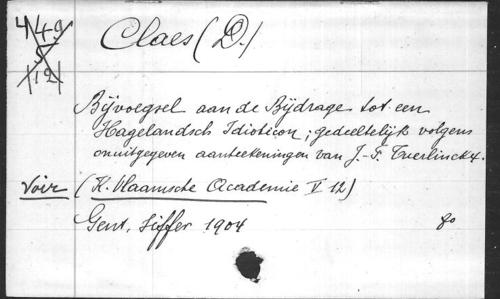 449
5
12
Claes (D.)
Bijvoegsel aan de Bijdrage tot een
Hagelandsch Idioticon; gedeeltelijk volgens
onuitgegeven aanteekeningen van J.-F. Tuerlinckx.
Voir (K. Vlaamsche Academie V 12)
Gent, Siffer 1904 8o